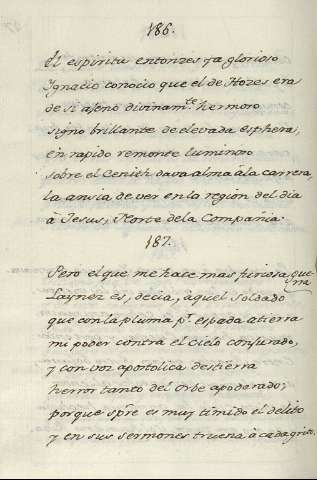 186.
El espiritu entonzes ya glorioso
Ygnacio conocio que el de Hozes era
de si ageno divinam.te hermoso
signo brillante de elevada esphera,
en rapido remonte luminoso
sobre el Cenith dava alma à la carrera,
la ansia de ver en la region del dia
à Jesus, Norte de la Compañia.
187.
Pero el que me hace mas furiosa guerra
Laynez es, decia, àquel Soldado
que con la pluma p.r espada atierra
mi poder contra el cielo conjurado,
y con voz apostolica destierra
herror tanto del Orbe apoderado;
porque spre es muy timido el delito
y en sus sermones truena à cada grito.